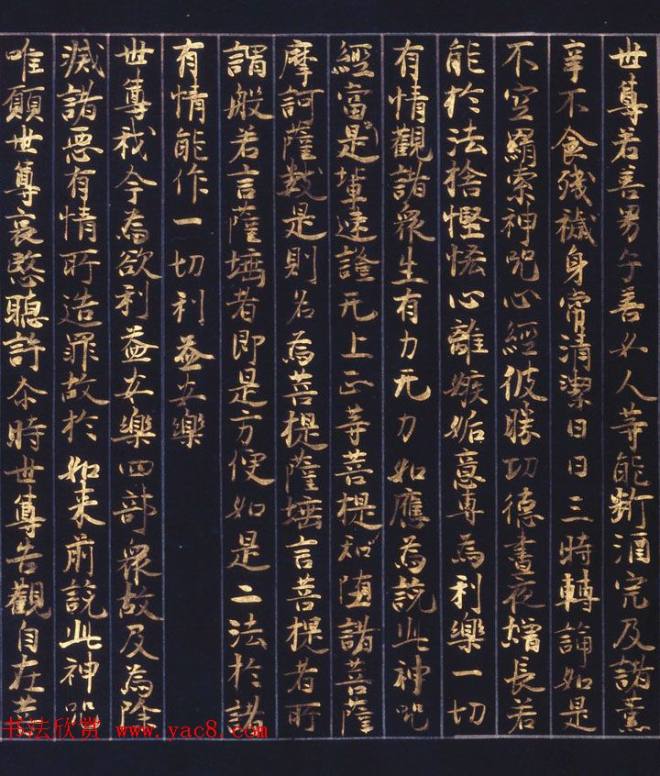 世尊若善男子善女人等能斷酒宍及諸薰
辛不食殘穢身常清潔日日三時轉誦如是
不空羂索神咒心經彼勝功德晝夜增長若
能於法捨慳悋心離嫉姤意專為利樂一切
有情觀諸衆生有力无力如應為說此神咒
經當是輩速證无上正等菩提和隨諸菩薩
摩訶薩數是則名為菩提薩埵言菩提者所
謂般若言薩埵者即是方便如是二法於諸
有情能作一切利益安樂
世尊我今為欲利益安樂四部衆故及為除
滅諸惡有情所造罪故於如来前說此神咒
唯願世尊哀愍聽許尒時世尊告觀自在菩
书法欣赏 www.yac8.com